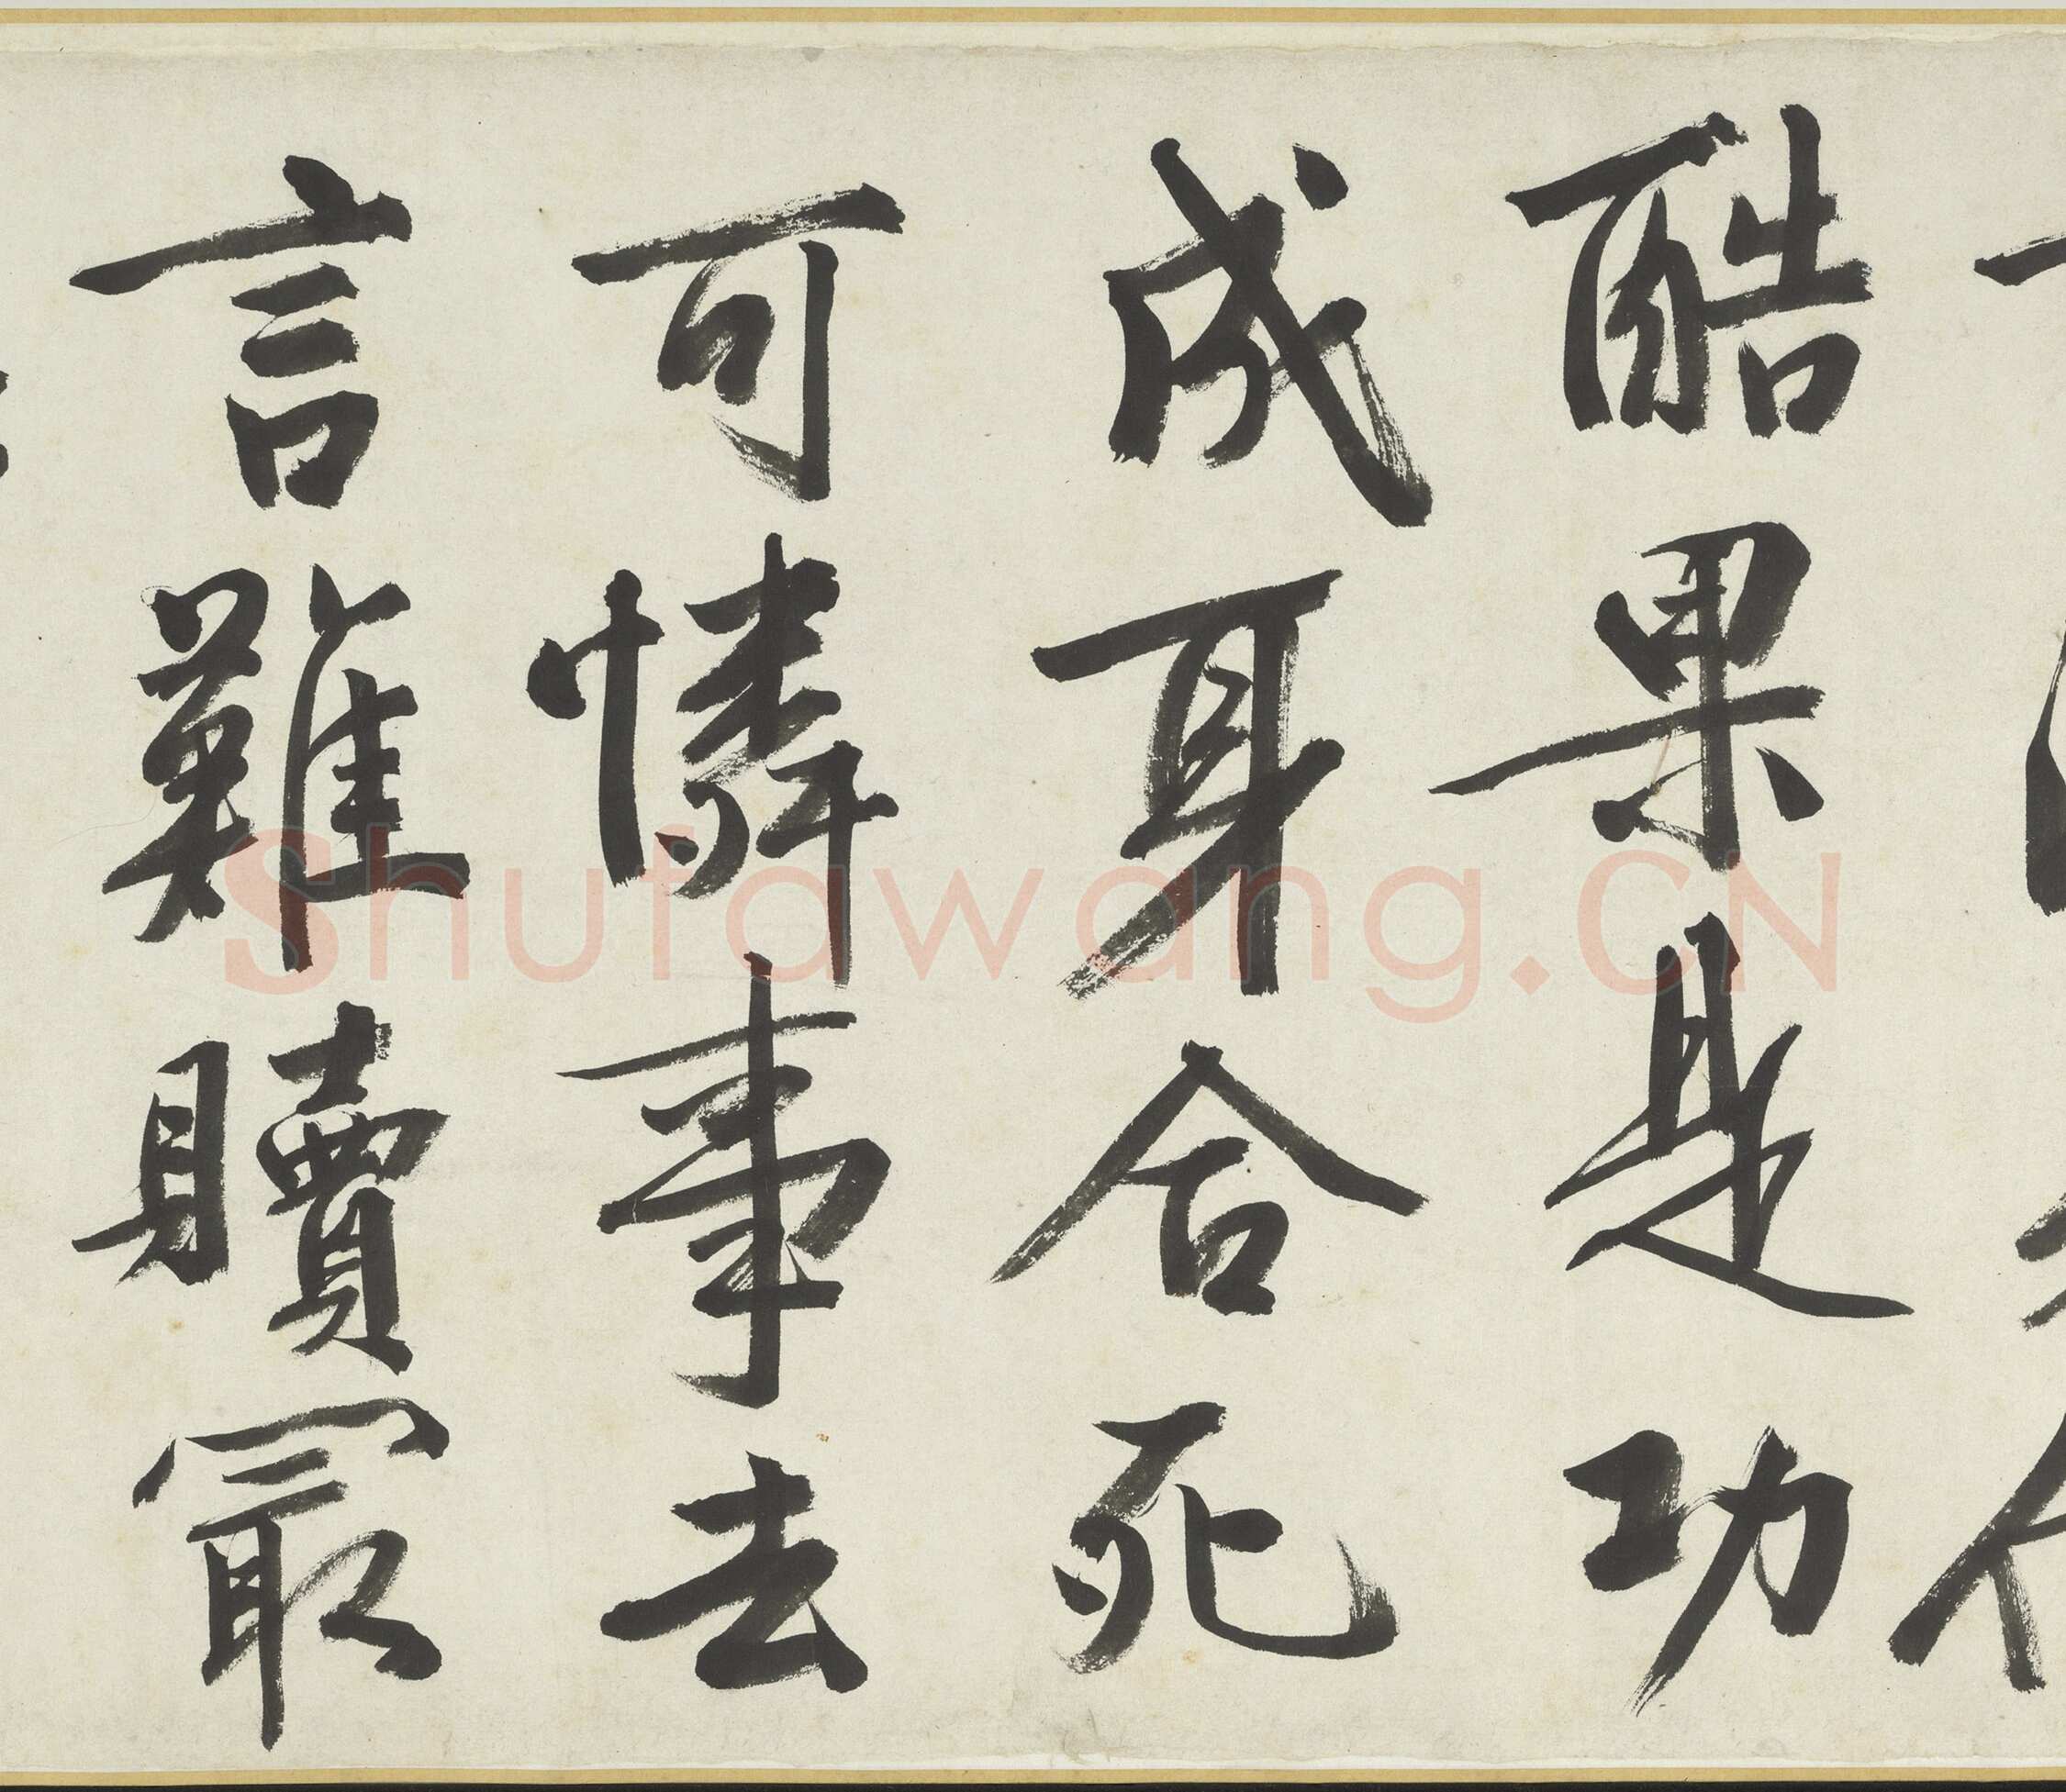 酷果是功
成身合死
可憐事去
言難贖冣
Shufawang.CN